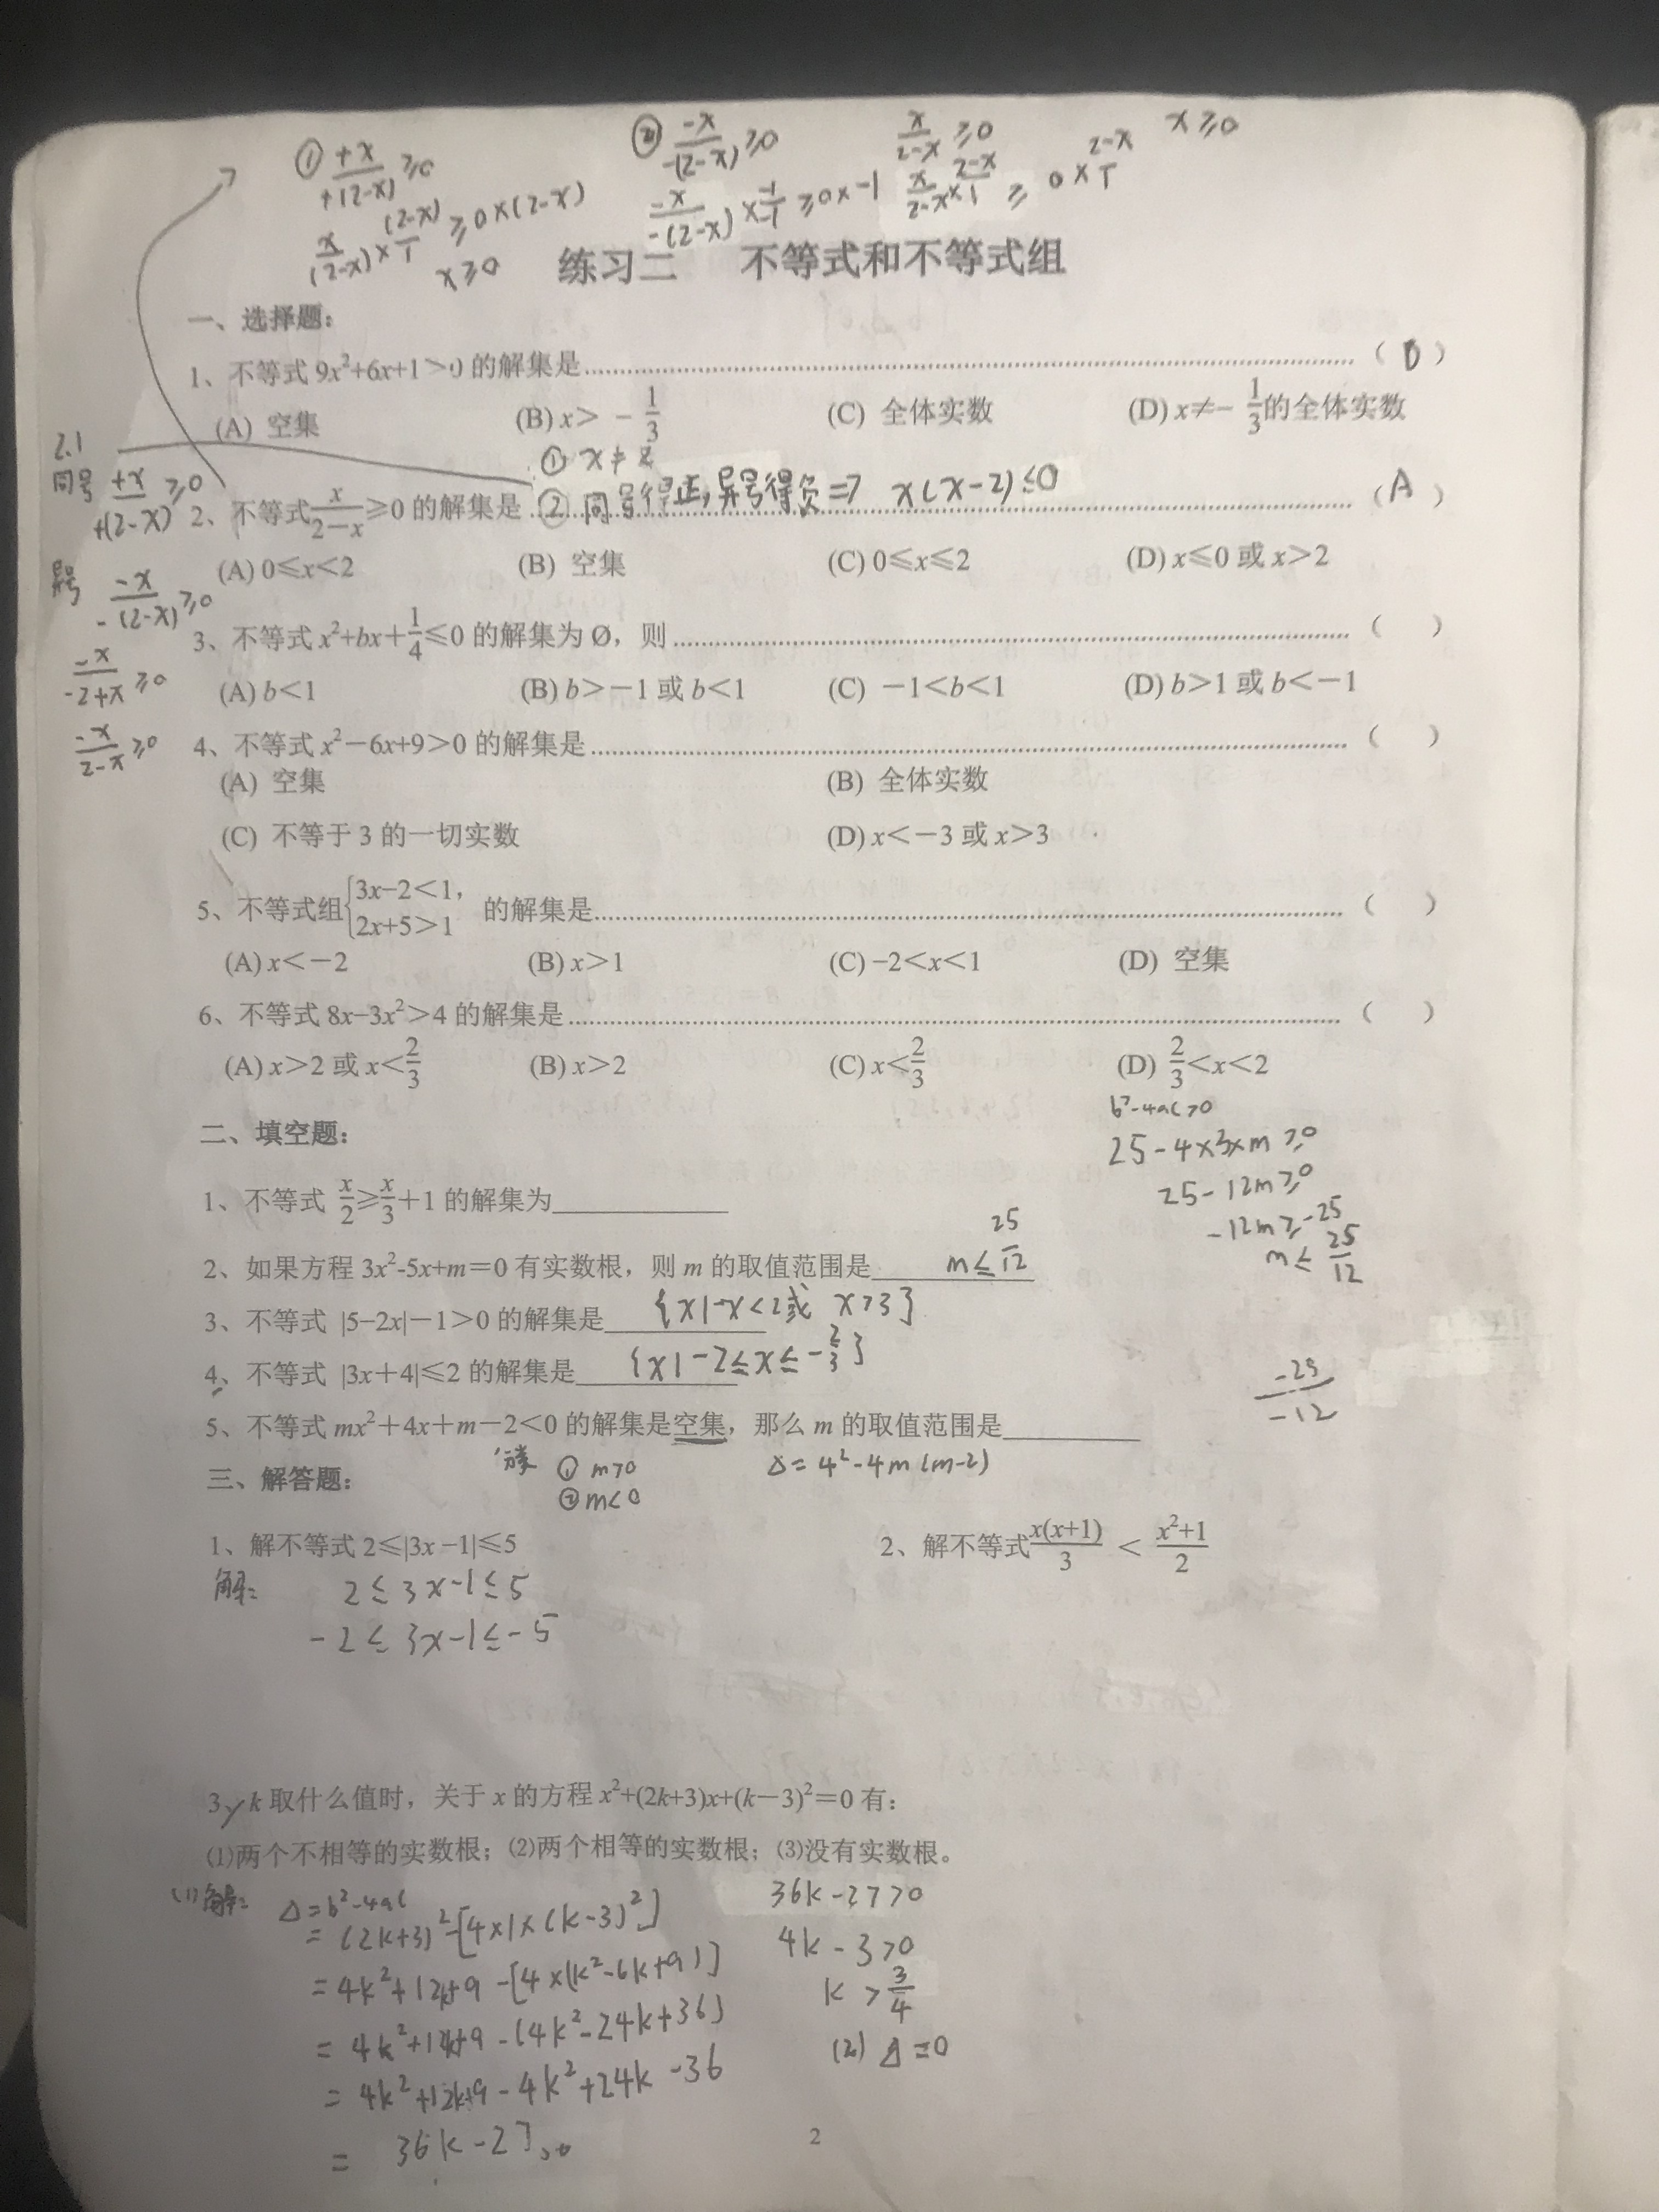 ① +x/+(2-x) ≥0
② -x/-(2-x) ≥0
x/2-x ≥0
x≥0
x/(2-x) × (2-x)/1 ≥0×(2-x)
-x/-(2-x) × -1/-1 ≥0×-1
x/2-x × 2-x/1 ≥ 0× 2-x/1
x≥0
练习二 不等式和不等式组
一、选择题：
1、不等式 9x²+6x+1>0 的解集是 （ D ）
(A) 空集 (B) x> －1/3 (C) 全体实数 (D) x≠－1/3的全体实数
① x≠2
2.1
同号 +x/+(2-x) ≥0
2、不等式 x/2－x ≥0 的解集是 ② 同号得正,异号得负 => x(x-2)≤0 （ A ）
(A) 0≤x<2 (B) 空集 (C) 0≤x≤2 (D) x≤0 或 x>2
异号 -x/-(2-x) ≥0
3、不等式 x²+bx+1/4≤0 的解集为 Ø，则 （ ）
-x/-2+x ≥0
(A) b<1 (B) b>－1 或 b<1 (C) －1<b<1 (D) b>1 或 b<－1
-x/2-x ≥0
4、不等式 x²－6x+9>0 的解集是 （ ）
(A) 空集 (B) 全体实数
(C) 不等于 3 的一切实数 (D) x<－3 或 x>3
5、不等式组{3x−2<1，2x+5>1 的解集是 （ ）
(A) x<－2 (B) x>1 (C) −2<x<1 (D) 空集
6、不等式 8x−3x²>4 的解集是 （ ）
(A) x>2 或 x<2/3 (B) x>2 (C) x<2/3 (D) 2/3<x<2
b²-4ac>0
二、填空题：
25-4×3×m≥0
25-12m≥0
1、不等式 x/2≥x/3＋1 的解集为
-12m≥-25
m≤ 25/12
2、如果方程 3x²-5x+m＝0 有实数根，则 m 的取值范围是 m≤ 25/12
3、不等式 |5−2x|－1>0 的解集是 {x|-x<2或 x>3}
4、不等式 |3x＋4|≤2 的解集是 {x|-2≤x≤-2/3}
-25/-12
5、不等式 mx²＋4x＋m－2<0 的解集是空集，那么 m 的取值范围是
① m>0
Δ=4²-4m(m-2)
② m<0
三、解答题：
1、解不等式 2≤|3x −1|≤5 2、解不等式 x(x+1)/3 < x²+1/2
解: 2≤3x-1≤5
-2≤3x-1≤-5
3、k 取什么值时，关于 x 的方程 x²+(2k+3)x+(k－3)²＝0 有：
⑴两个不相等的实数根；⑵两个相等的实数根；⑶没有实数根。
(1)解: Δ=b²-4ac
=(2k+3)²-[4×1×(k-3)²]
=4k²+12k+9-[4×(k²-6k+9)]
=4k²+12k+9-(4k²-24k+36)
=4k²+12k+9-4k²+24k-36
= 36k-27>0
36k-27>0
4k-3>0
k>3/4
(2) Δ=0
2